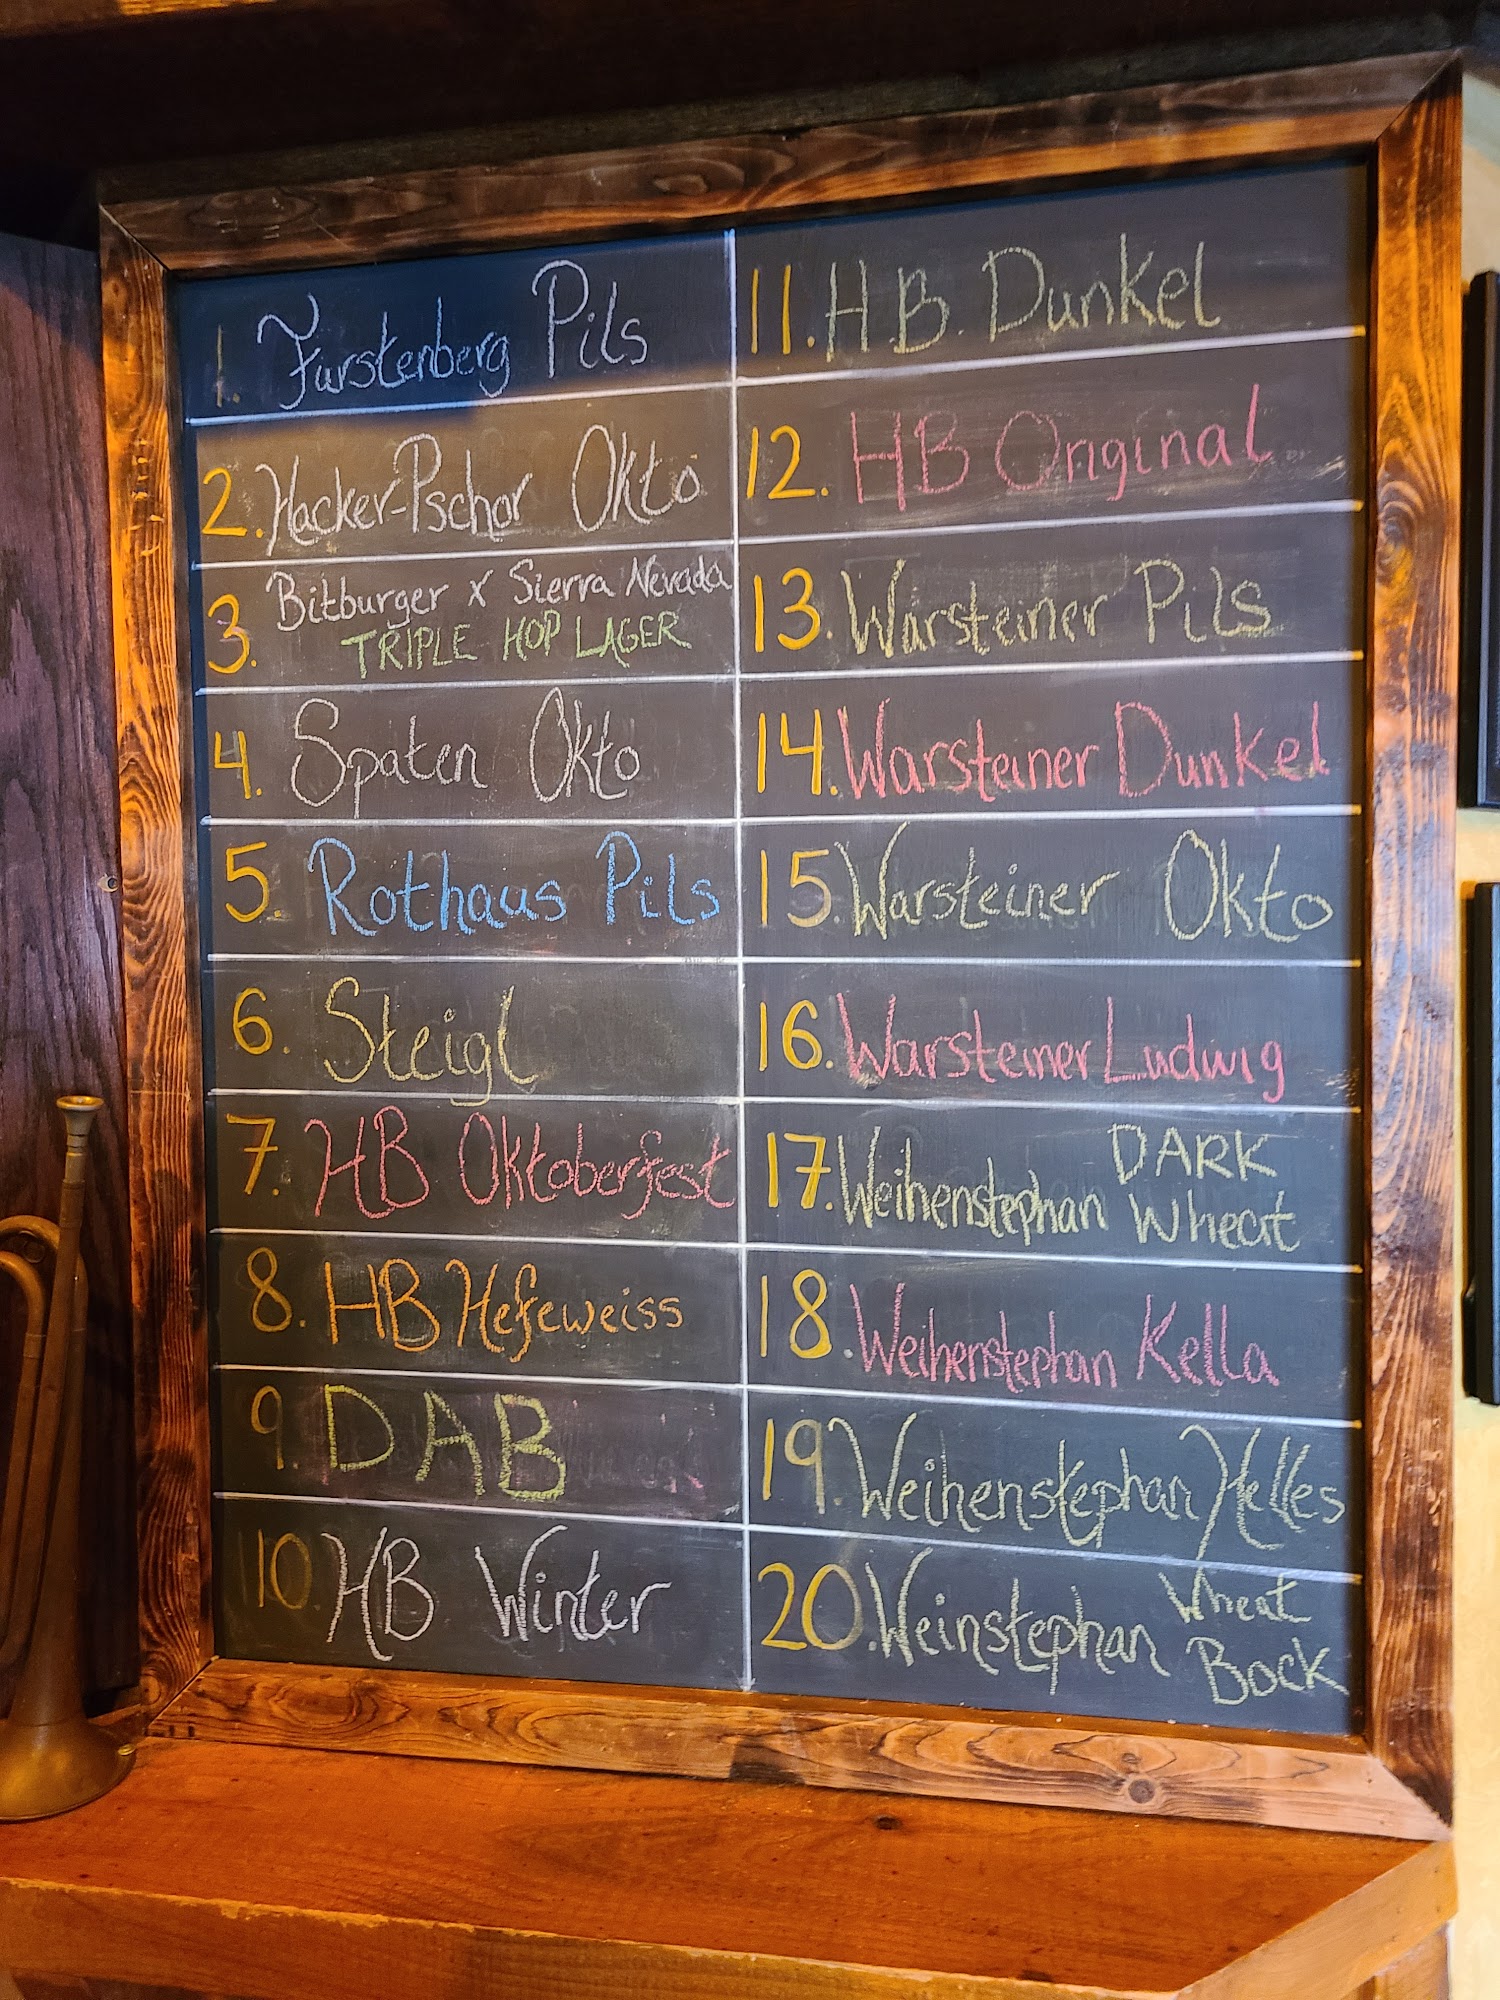 1. Furstenberg Pils
2. Hacker-Pschor Okto
3. Bitburger x Sierra Nevada
TRIPLE HOP LAGER
4. Spaten Okto
5. Rothaus Pils
6. Steigl
7. HB Oktoberfest
8. HB Hefeweiss
9. DAB
10. HB Winter
11. HB. Dunkel
12. HB Original
13. Warsteiner Pils
14. Warsteiner Dunkel
15. Warsteiner Okto
16. Warsteiner Ludwig
17. Weihenstephan DARK
Wheat
18. Weihenstephan Kella
19. Weihenstephan Helles
20. Weinstephan Wheat
Bock